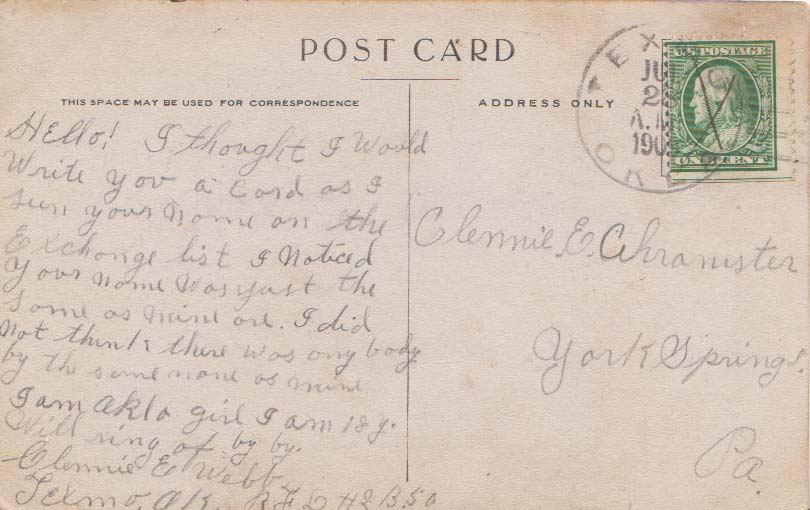 POST CARD
THIS SPACE MAY BE USED FOR CORRESPONDENCE
ADDRESS ONLY
TEX
JU
28
A.M
190
OKLA
U.S. POSTAGE
ONE CENT
Hello! I thought I Would
Write you a card as I
seen your name on the
Exchange list I Noticed
your name was just the
same as mine are. I did
not think there was any body
by the same name as mine
I am Okla girl I am 18 y.
Will ring of by by.
Clennie E Webb
Texmo, OK. RFD #2 B.50
Clennie. E.
York Springs.
Pa.